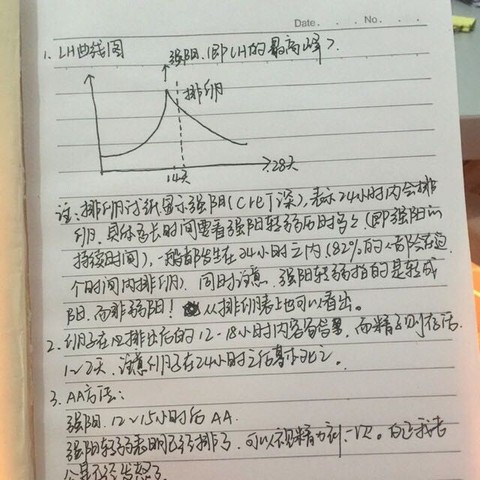 Date. No.
1. LH曲线图
强阳.(即LH的最高峰).
排卵
14天
28天
注:排卵试纸显示强阳(C比T深),表示24小时内会排
卵.具体多长时间要看强阳转弱历时多久(即强阳的
持续时间),一般都发生在24小时之内(82%的人都会在这
个时间内排卵).同时注意.强阳转弱指的是转成
阳.而非弱阳! 从排卵卡上也可以看出.
2.卵子在排出后的12-18小时内容易受孕,而精子则存活
1~2天.注意卵子在24小时之后基本死亡.
3. AA方法:
强阳.12~15小时后AA.
强阳转弱表明已经排了.可以视精力补一次.